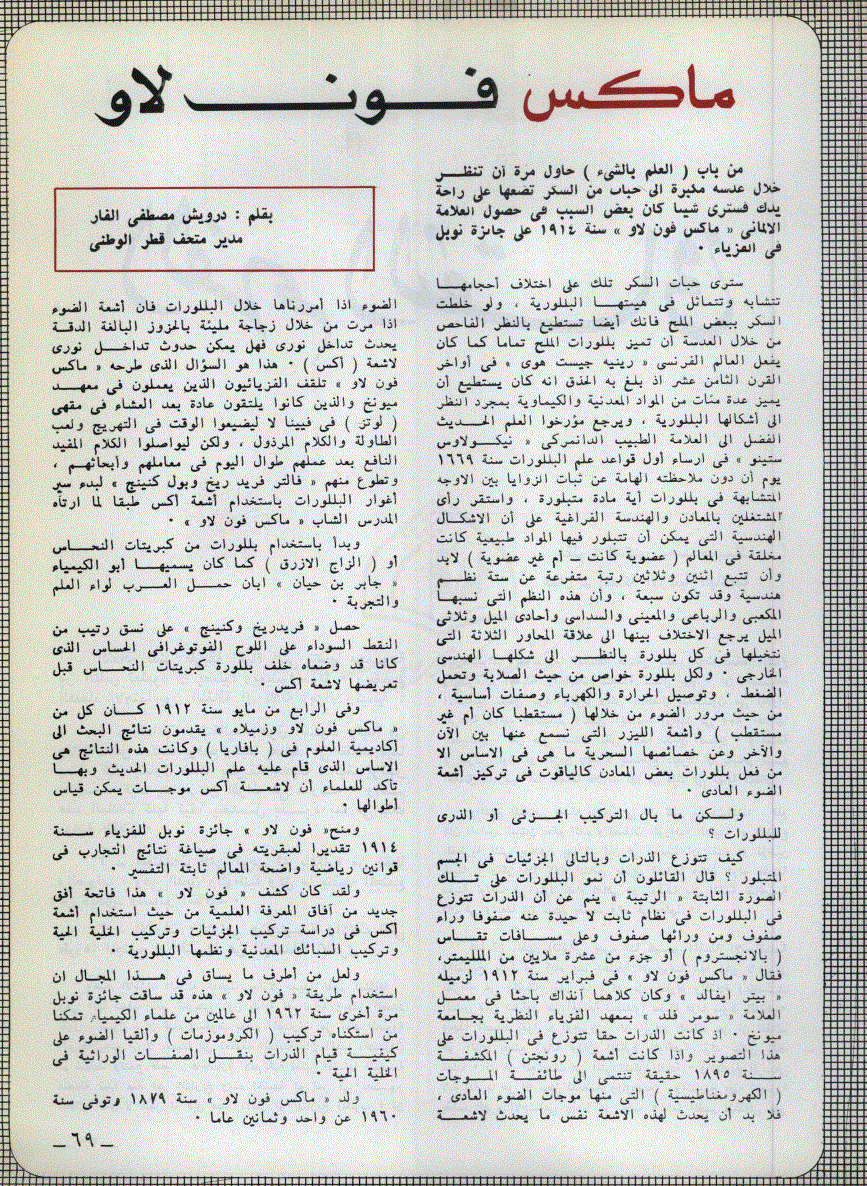 ماكس فون لاو
من باب ( العلم بالشىء ) حاول مرة أن تنظر
خلال عدسه مكبرة الى حباب من السكر تضعها على راحة
يدك فسترى شيئا كان بعض السبب فى حصول العلامة
الالمانى « ماكس فون لاو » سنة ١٩١٤ على جائزة نوبل
فى الفزياء ٠
سترى حبات السكر تلك على اختلاف أحجامها
تتشابه وتتماثل فى هيئتها البللورية ، ولو خلطت
السكر ببعض الملح فانك أيضا تستطيع بالنظر الفاحص
من خلال العدسة أن تميز بللورات الملح تماما كما كان
يفعل العالم الفرنسى « رينيه جيست هوى » فى أواخر
القرن الثامن عشر اذ بلغ به الحذق انه كان يستطيع أن
يميز عدة مئات من المواد المعدنية والكيماوية بمجرد النظر
الى أشكالها البللورية ، ويرجع مؤرخوا العلم الحديث
الفضل الى العلامة الطبيب الدانمركى « نيكولاوس
ستينو » فى ارساء أول قواعد علم البللورات سنة ١٦٦٩
يوم أن دون ملاحظته الهامة عن ثبات الزوايا بين الاوجه
المتشابهة فى بللورات أية مادة متبلورة ، واستقر رأى
المشتغلين بالمعادن والهندسة الفراغية على أن الاشكال
الهندسية التى يمكن أن تتبلور فيها المواد طبيعية كانت
مخلقة فى المعالم ( عضوية كانت ــ أم غير عضوية ) لابد
وأن تتبع اثنين وثلاثين رتبة متفرعة عن ستة نظم
هندسية وقد تكون سبعة ، وأن هذه النظم التى نسبها
المكعبى والرباعى والمعينى والسداسى وأحادى الميل وثلاثى
الميل يرجع الاختلاف بينها الى علاقة المحاور الثلاثة التى
نتخيلها فى كل بللورة بالنظر الى شكلها الهندسى
الخارجى ٠ ولكل بللورة خواص من حيث الصلابة وتحمل
الضغط ، وتوصيل الحرارة والكهرباء وصفات أساسية ،
من حيث مرور الضوء من خلالها ( مستقطبا كان أم غير
مستقطب ) وأشعة الليزر التى نسمع عنها بين الآن
والآخر وعن خصائصها السحرية ما هى فى الاساس الا
من فعل بللورات بعض المعادن كالياقوت فى تركيز أشعة
الضوء العادى ٠
ولكن ما بال التركيب الجزئى أو الذرى
للبللورات ؟
كيف تتوزع الذرات وبالتالى الجزئيات فى الجسم
المتبلور ؟ قال القائلون أن نمو البللورات على تلك
الصورة الثابتة « الرتيبة » ينم عن أن الذرات تتوزع
فى البللورات فى نظام ثابت لا حيدة عنه صفوفا وراء
صفوف ومن ورائها صفوف وعلى مسافات تقاس
( بالانجستروم ) أو جزء من عشرة ملايين من الملليمتر،
فقال « ماكس فون لاو » فى فبراير سنة ١٩١٢ لزميله
« بيتر ايفالد » وكان كلاهما آنذاك باحثا فى معمل
العلامة « سومر فلد » بمعهد الفزياء النظرية بجامعة
ميونخ ٠ اذ كانت الذرات حقا تتوزع فى البللورات على
هذا التصوير واذا كانت أشعة ( رونجتن ) المكشفة
سنة ١٨٩٥ حقيقة تنتمى الى طائفة الموجات
( الكهرومغناطيسية ) التى منها موجات الضوء العادى ،
فلا بد أن يحدث لهذه الاشعة نفس ما يحدث لاشعة
بقلم : درويش مصطفى الفار
مدير متحف قطر الوطنى
الضوء اذا أمررناها خلال البللورات فان أشعة الضوء
اذا مرت من خلال زجاجة مليئة بالحزوز البالغة الدقة
يحدث تداخل نورى فهل يمكن حدوث تداخل نورى
لاشعة ( أكس ) ٠ هذا هو السؤال الذى طرحه « ماكس
فون لاو » تلقف الفزيائيون الذين يعملون فى معهد
ميونخ والذين كانوا يلتقون عادة بعد العشاء فى مقهى
( لوتز ) فى فيينا لا ليضيعوا الوقت فى التهريج ولعب
الطاولة والكلام المرذول ، ولكن ليواصلوا الكلام المفيد
النافع بعد عملهم طوال اليوم فى معاملهم وأبحاثهم ،
وتطوع منهم « فالتر فريد ريخ وبول كنينج » لبدء سير
أغوار البللورات باستخدام أشعة أكس طبقا لما ارتآه
المدرس الشاب « ماكس فون لاو » ٠
وبدأ باستخدام بللورات من كبريتات النحاس
أو ( الزاج الازرق ) كما كان يسميها أبو الكيمياء
« جابر بن حيان » ابان حمل العرب لواء العلم
والتجربة ٠
حصل « فريدريخ وكنينج » على نسق رتيب من
النقط السوداء على اللوح الفوتوغرافى الحساس الذى
كانا قد وضعاه خلف بللورة كبريتات النحاس قبل
تعريضها لاشعة أكس ٠
وفى الرابع من مايو سنة ١٩١٢ كان كل من
« ماكس فون لاو وزميلاه » يقدمون نتائج البحث الى
أكاديمية العلوم فى ( بافاريا ) وكانت هذه النتائج هى
الاساس الذى قام عليه علم البللورات الحديث وبها
تأكد للعلماء أن لاشعة أكس موجات يمكن قياس
أطوالها ٠
ومنح« فون لاو » جائزة نوبل للفزياء سنة
١٩١٤ تقديرا لعبقريته فى صياغة نتائج التجارب فى
قوانين رياضية واضحة المعالم ثابتة التفسير ٠
ولقد كان كشف « فون لاو » هذا فاتحة أفق
جديد من آفاق المعرفة العلمية من حيث استخدام أشعة
أكس فى دراسة تركيب الجزئيات وتركيب الخلية الحية
وتركيب السبائك المعدنية ونظمها البللورية ٠
ولعل من أطرف ما يساق فى هذا المجال ان
استخدام طريقة « فون لاو » هذه قد ساقت جائزة نوبل
مرة أخرى سنة ١٩٦٢ الى عالمين من علماء الكيمياء تمكنا
من استكناه تركيب ( الكروموزمات ) وألقيا الضوء على
كيفية قيام الذرات بنقل الصفات الوراثية فى
الخلية الحية ٠
ولد « ماكس فون لاو » سنة ١٨٧٩ وتوفى سنة
١٩٦٠ عن واحد وثمانين عاما ٠
ــ ٦٩ ــ